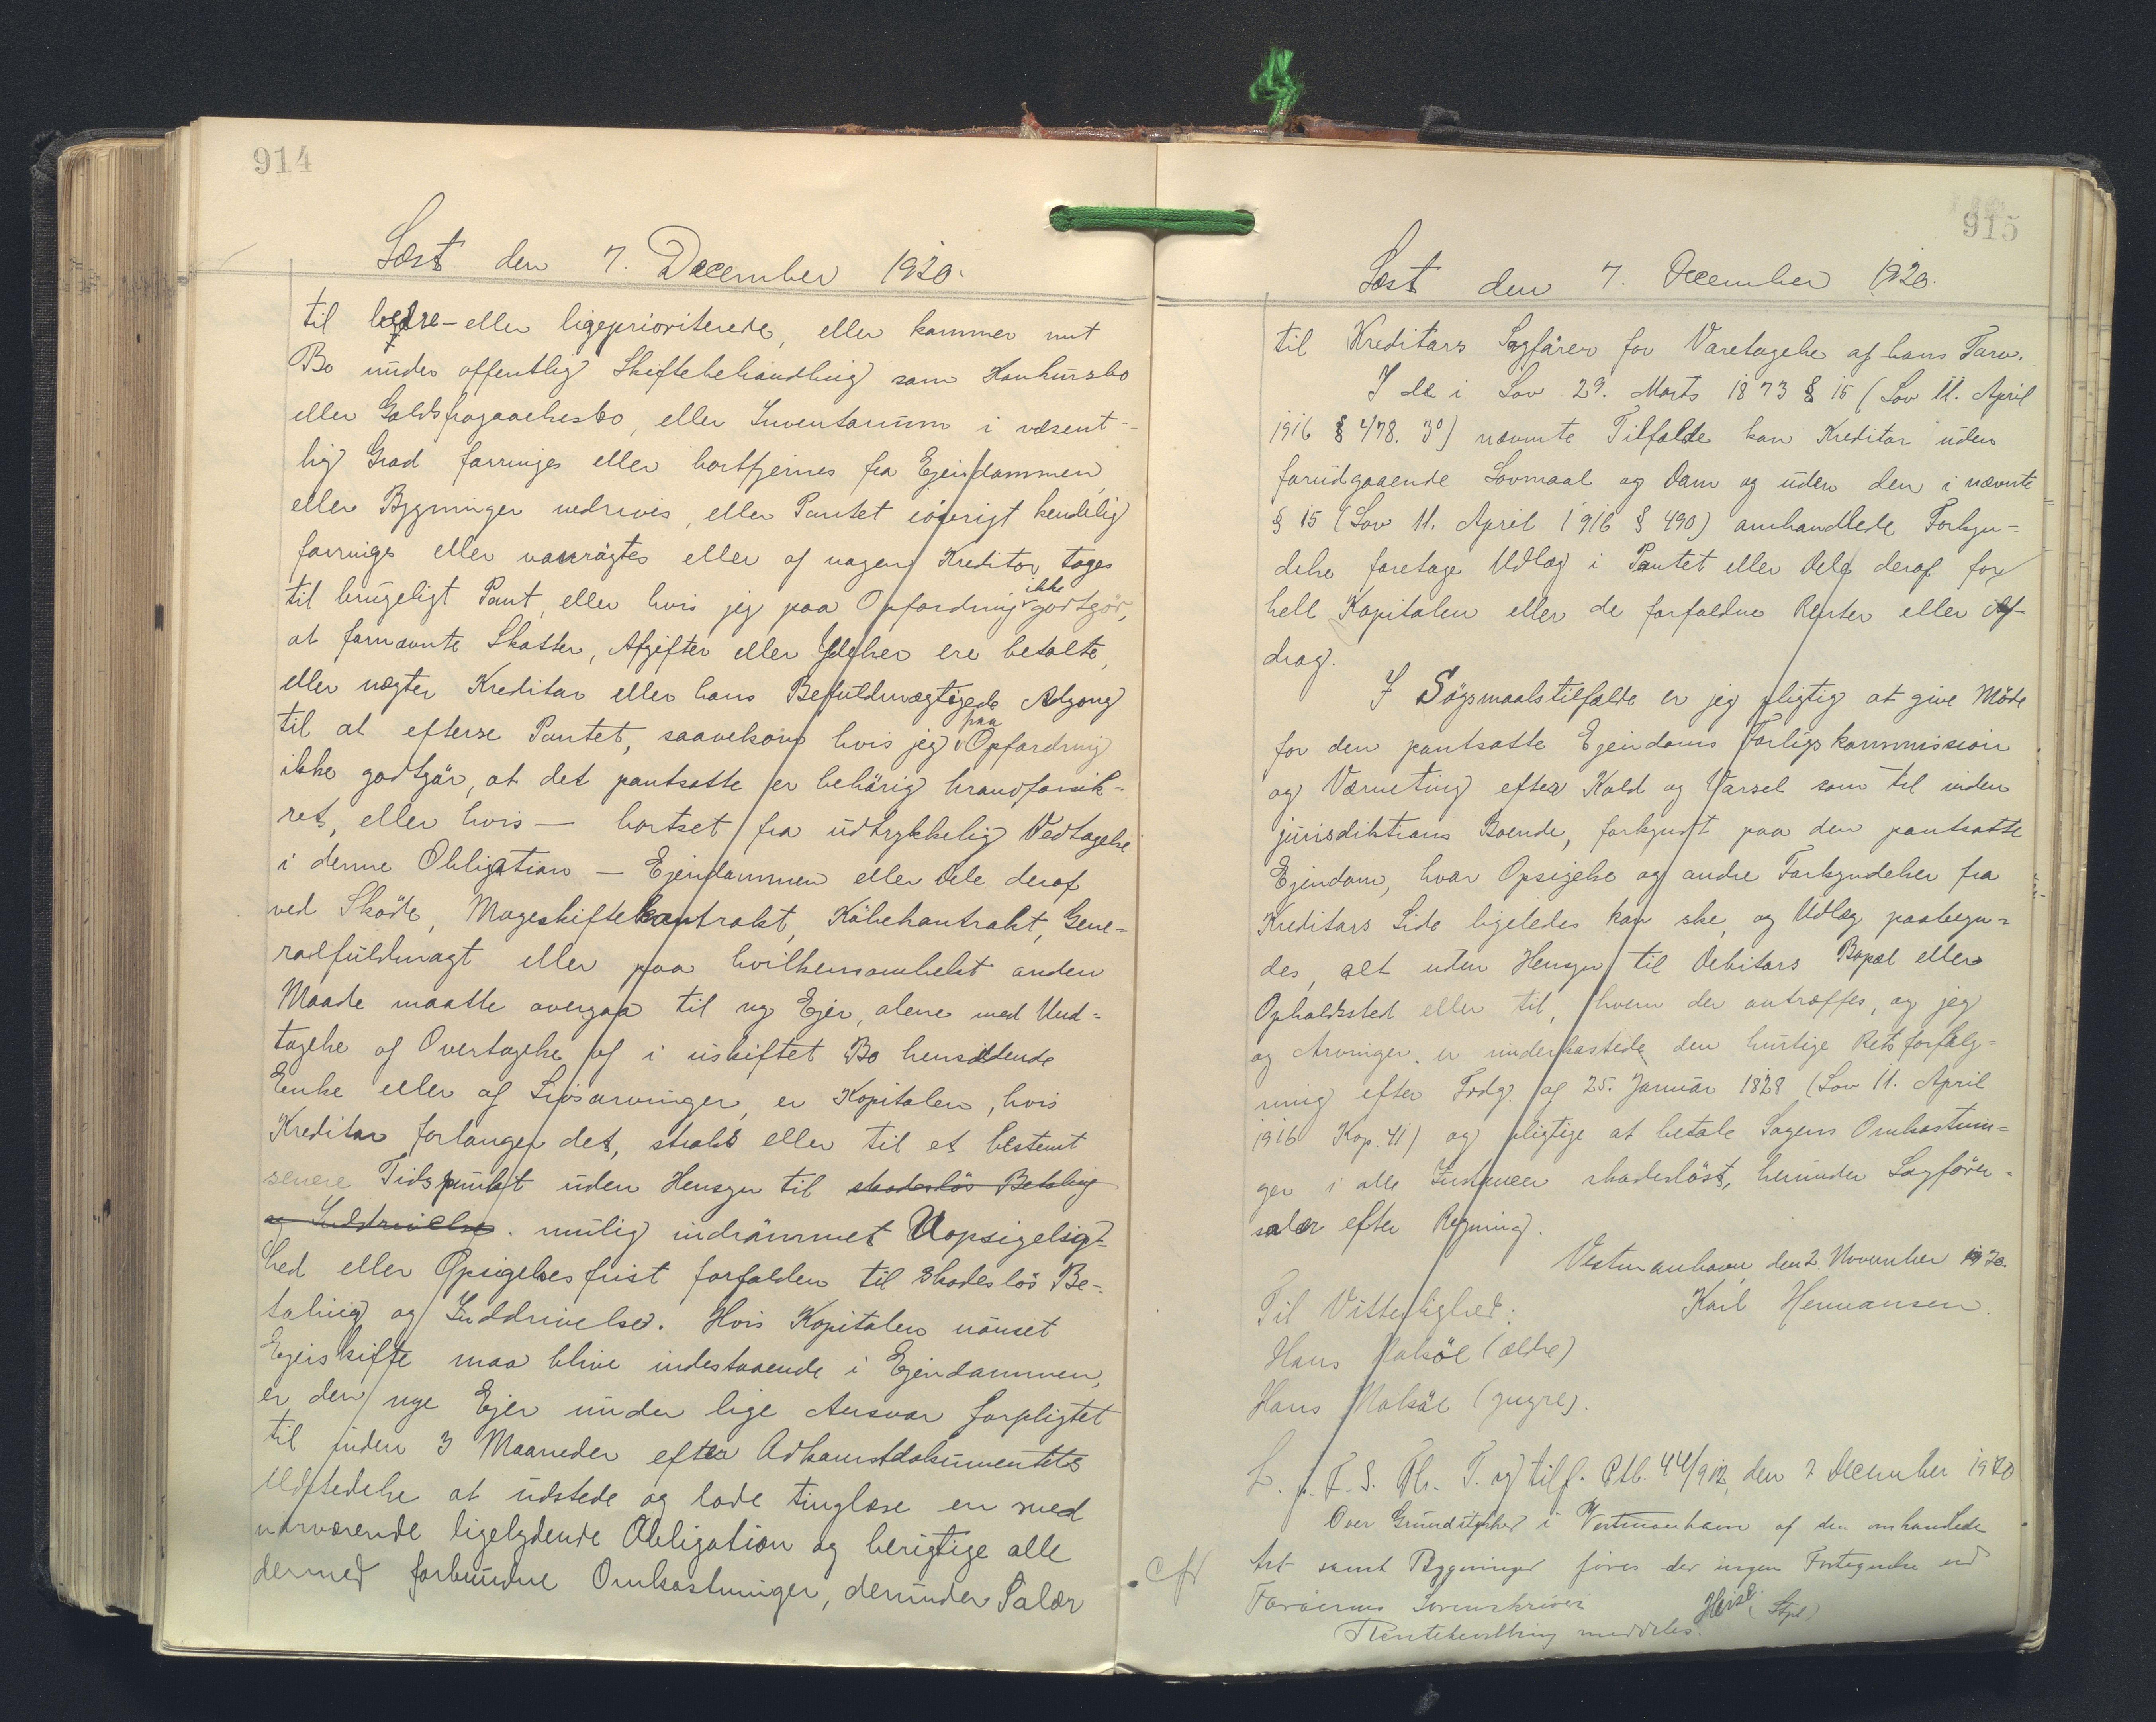 914
Læst den 7. December 1920.
til bedre- eller ligeprioriterede, eller kommer mit
Bo under offentlig Skiftebehandling som Konkursbo
eller Gældsfragaaelsesbo, eller Inventarium i væsent-
lig Grad forringes eller bortfjernes fra Ejendommen,
eller Bygninger nedrives, eller Pantet iøvrigt kendelig
forringes eller vanrøgtes eller af nogen Kreditor tages
til brugeligt Pant, eller hvis jeg paa Opfordring ikke godtgør,
at fornævnte Skatter, Afgifter eller Ydelser ere betalte,
eller nægter Kreditor eller hans Befuldmægtigede Adgang
til at efterse Pantet, saavelsom hvis jeg paa Opfordring
ikke godtgør, at det pantsatte er behørig brandforsik-
ret, eller hvis — bortset fra udtrykkelig Vedtagelse
i denne Obligation — Ejendommen eller Dele deraf
ved Skøde, Mageskiftekontrakt, Købekontrakt, Gene-
ralfuldmagt eller paa hvilkensomhelst anden
Maade maatte overgaa til ny Ejer, alene med Und-
tagelse af Overtagelse af i uskiftet Bo hensiddende
Enke eller af Livsarvinger, er Kapitalen, hvis
Kreditor forlanger det, straks eller til et bestemt
senere Tidspunkt uden Hensyn til skadesløs Betaling
og Inddrivelse. mulig indrømmet Uopsigelig-
hed eller Opsigelsesfrist forfalden til skadesløs Be-
taling og Inddrivelse. Hvis Kapitalen uanset
Ejerskifte maa blive indestaaende i Ejendommen,
er den nye Ejer under lige Ansvar forpligtet
til inden 3 Maaneder efter Adkomstdokumentets
Udstedelse at udstede og lade tinglæse en med
nærværende ligelydende Obligation og berigtige alle
dermed forbundne Omkostninger, derunder Salær
915
Læst den 7. December 1920.
til Kreditors Sagfører for Varetagelse af hans Tarv.
I de i Lov 29. Marts 1873 § 15 (Lov 11. April
1916 § 478. 3°) nævnte Tilfælde kan Kreditor uden
forudgaaende Lovmaal og Dom og uden den i nævnte
§ 15 (Lov 11. April 1916 § 490) omhandlede Forkyn-
delse foretage Udlæg i Pantet eller Dele deraf for
hele Kapitalen eller de forfaldne Renter eller Af-
drag.
I Søgsmaalstilfælde er jeg pligtig at give Møde
for den pantsatte Ejendoms Forligskommission
og Værneting efter Kald og Varsel som til inden
jurisdiktions Boende, forkyndt paa den pantsatte
Ejendom, hvor Opsigelse og andre Forkyndelser fra
Kreditors Side ligeledes kan ske, og Udlæg paabegyn-
des, alt uden Hensyn til Debitors Bopæl eller
Opholdssted eller til, hvem der antræffes, og jeg
og Arvinger er underkastede den hurtige Retsforfølg-
ning efter Frdg. af 25. Januar 1828 (Lov 11. April
1916 Kap. 41) og pligtige at betale Sagens Omkostnin-
ger i alle Instancer skadesløst, herunder Sagfører-
salær efter Regning.
Vestmanhavn den 2. November 1920.
Til Vitterlighed: Karl Hermansen.
Hans (ældre)
Hans (yngre).
L. p. F. S. T. og tilf. Ptb. 44/912, den 7 December 1920
Over Grundstykker i Vestmanhavn af den omhandlede
cfr
Art samt Bygninger føres der ingen Fortegnelse ved
Færøernes Sorenskriveri
(Stpl)
meddeles.